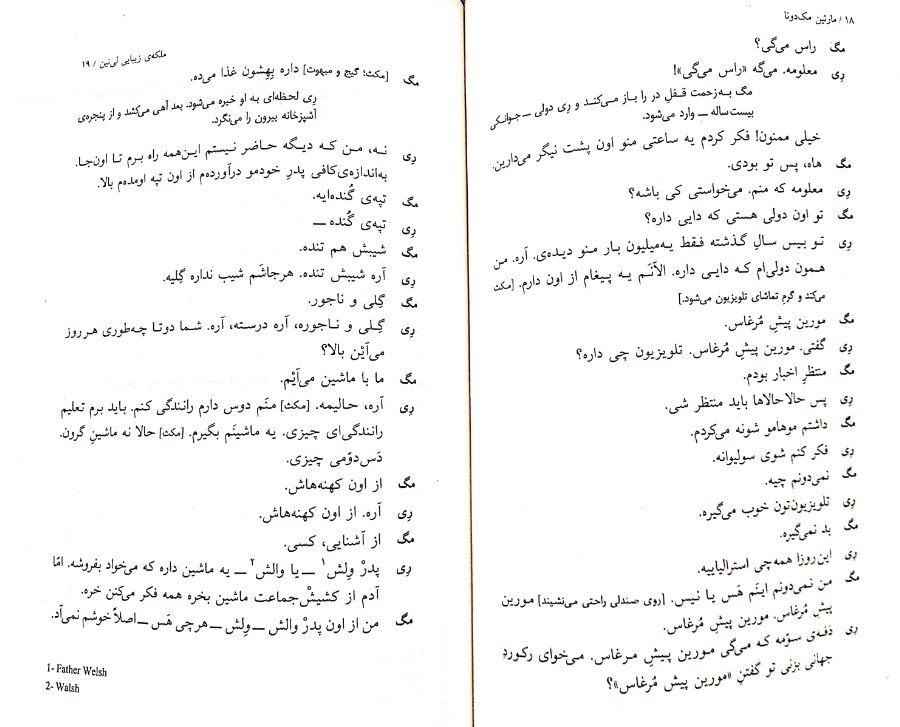 ۱۸ / مارتین مک‌دونا
مگ راس می‌گی؟
ری معلومه. می‌گه «راس می‌گی»!
مگ به‌زحمت قفلِ در را باز می‌کنند و رِی دولی ــ جوانکی
بیست‌ساله ــ وارد می‌شود.
خیلی ممنون! فکر کردم یه ساعتی منو اون پشت نیگر می‌دارین.
مگ هاه، پس تو بودی.
رِی معلومه که منم. می‌خواستی کی باشه؟
مگ تو اون دولی هستی که دایی داره؟
رِی تو بیس سالِ گذشته فقط یه‌میلیون بار منو دیده‌ی. آره. من
همون دولی‌ام که دایی داره. الآنَم یه پیغام از اون دارم. [مکث
می‌کند و گرمِ تماشای تلویزیون می‌شود.]
مگ مورین پیشِ مُرغاس.
رِی گفتی. مورین پیشِ مُرغاس. تلویزیون چی داره؟
مگ منتظرِ اخبار بودم.
رِی پس حالاحالاها باید منتظر شی.
مگ داشتم موهامو شونه می‌کردم.
رِی فکر کنم شوی سولیوانه.
مگ نمی‌دونم چیه.
رِی تلویزیون‌تون خوب می‌گیره.
مگ بد نمی‌گیره.
رِی این‌روزا همه‌چی استرالیاییه.
مگ من نمی‌دونم اینَم هَس یا نیس. [روی صندلی راحتی می‌نشیند] مورین
پیشِ مُرغاس. مورین پیشِ مُرغاس.
رِی دَفه‌ی سوّمه که می‌گی مورین پیشِ مرغاس. می‌خوای رکوردِ
جهانی بزنی تو گفتنِ «مورین پیش مُرغاس»؟
ملکه‌ی زیبایی لی‌نین / ۱۹
مگ [مکث؛ گیج و مبهوت] داره بِهِشون غذا می‌ده.
رِی لحظه‌ای به او خیره می‌شود. بعد آهی می‌کشد و از پنجره‌ی
آشپزخانه بیرون را می‌نگرد.
رِی نه، من که دیگه حاضر نیستم این‌همه راه برم تا اون‌جا.
به‌اندازه‌ی‌کافی پدرِ خودمو درآورده‌م از اون تپه اومده‌م بالا.
مگ تپه‌ی گُنده‌ایه.
رِی تپه‌ی گُنده ــ
مگ شیبش هم تنده.
رِی آره شیبش تنده. هرجاشَم شیب نداره گِلیه.
مگ گِلی و ناجور.
رِی گِلی و ناجوره، آره درسته، آره. شما دوتا چه‌طوری هرروز
می‌آیْن بالا؟
مگ ما با ماشین می‌آیْم.
رِی آره، حالیمه. [مکث] منَم دوس دارم رانندگی کنم. باید برم تعلیم
رانندگی‌ای چیزی. یه ماشینَم بگیرم. [مکث] حالا نه ماشینِ گرون.
دَس‌دوّمی چیزی.
مگ از اون کهنه‌هاش.
رِی آره. از اون کهنه‌هاش.
مگ از آشنایی، کسی.
رِی پدرْ وِلش۱ ــ یا والش۲ ــ یه ماشین داره که می‌خواد بفروشه. امّا
آدم از کشیشْ‌جماعت ماشین بخره همه فکر می‌کنن خره.
مگ من از اون پدرْ والش ــ وِلش ــ هرچی هَس ــ اصلاً خوشم نمی‌آد.
1- Father Welsh
2- Walsh